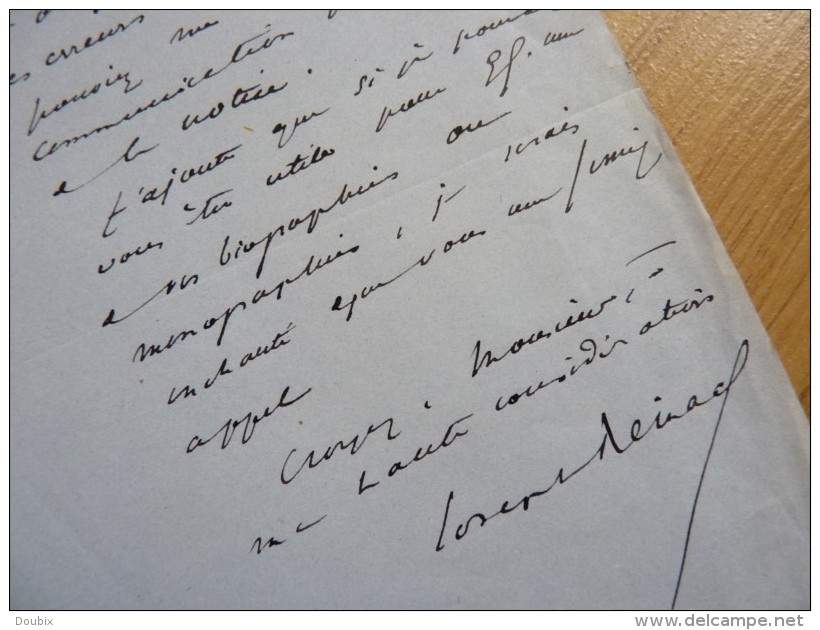 erreurs
pouviez me
communication
de la notice.
J'ajoute que si je
vous être utile pour
de vos biographies ou
monographies, je serais
enchanté que vous me
appel
Croyez, Monsieur, à
ma haute considération
Joseph Reinach
Doubix
www.delcampe.net